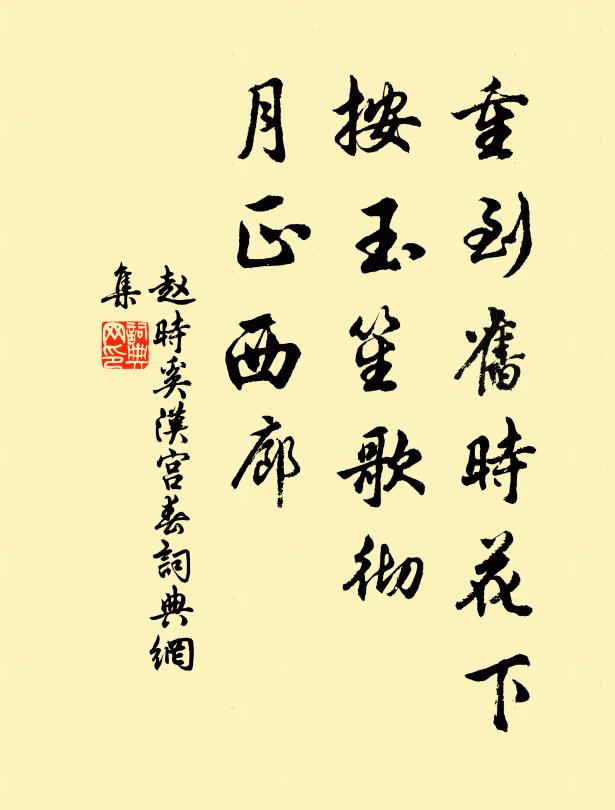 重到舊時花下
按玉笙歌彻
月正西廊
赵時奚漢宮春詞典網
集
詞典
网印